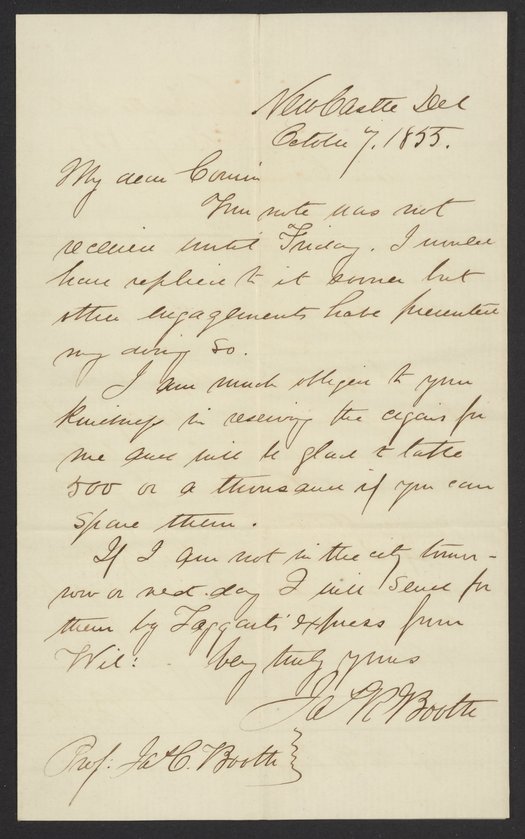 New Castle Del
October 7, 1855.
My dear Cousin
Your note was not
received until Friday. I would
have replied to it sooner but
other engagements have prevented
my doing so.
I am much obliged to your
kindness in reserving the cigars for
me and will be glad to take
500 or a thousand if you can
spare them.
If I am not in the city tomor-
row or next day I will send for
them by Taggart's express from
Wil: Very truly yours
Jas R Booth
Prof: Jas C. Booth